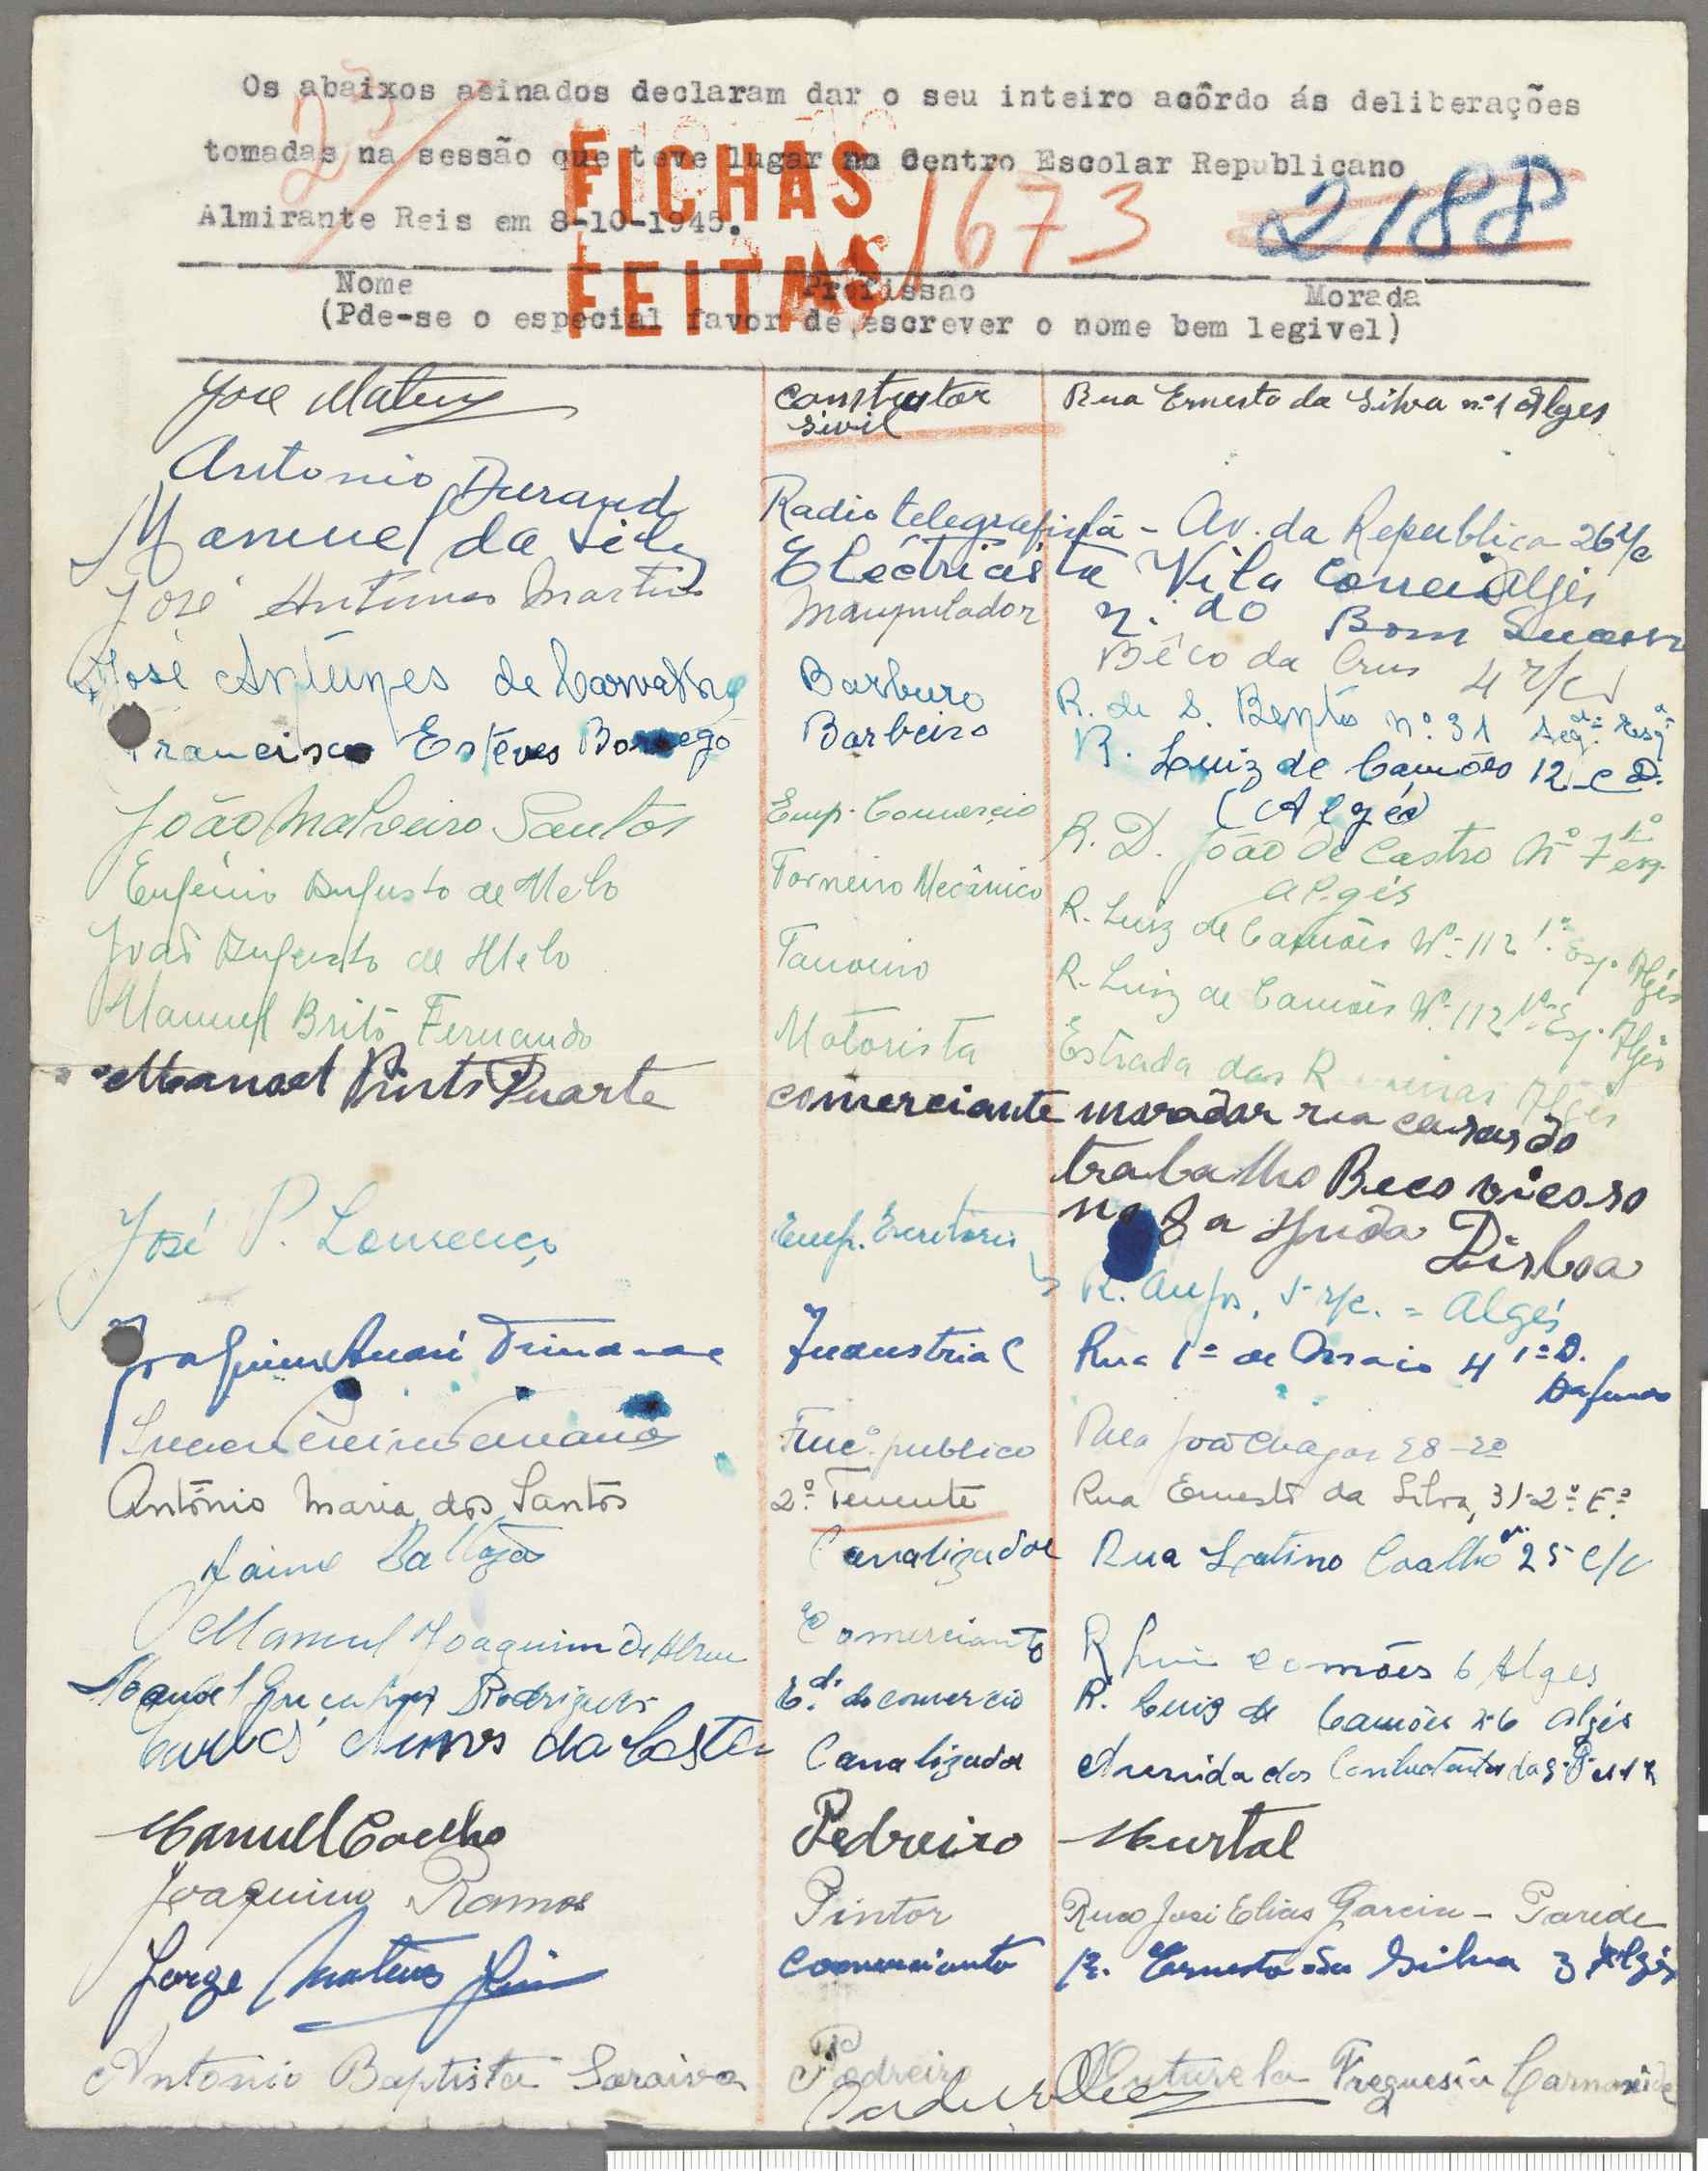 Os abaixos asinados declaram dar o seu inteiro acôrdo ás deliberações
tomadas na sessão que teve lugar no Centro Escolar Republicano
Almirante Reis em 8-10-1945.
23
FICHAS
FEITAS
1673
2188
Nome Profissão Morada
(Pde-se o especial favor de escrever o nome bem legivel)
José Mateus construtor sivil Rua Ernesto da Silva nº 1 Alges
Antonio Durand Radiotelegrafista - Av. da Republica 26 r/c
Manuel da Silva Electricista Vila Correia Algés
José Antunes Martins Manipulador n.º 20 Bom Sucesso
Bêco da Crus 4 r/c
José Antunes de Carvalho Barbeiro R. de S. Bento nº 31
Francisco Estêves Borrego Barbeiro R. Luiz de Camões 12 - C D.
(Algés)
João Malveiro Santos Emp. Comercio R. D. João de Castro Nº 7 1º esq.
Algés
Eugénio Augusto de Melo Torneiro Mecânico R. Luiz de Camões Nº 112 1º Esq. Algés
João Augusto de Melo Tanoeiro R. Luiz de Camões Nº 112 1º Esq. Algés
Manuel Brito Fernando Motorista Estrada das Algés
Manoel Pinto Duarte comerciante morador na casas do
trabalho Beco vicoso
no 8 a Ajuda Lisboa
José P. Lourenço Emp. Escritório R. 5 r/c. = Algés
Joaquim Industrial Rua 1º de Maio 4 1º D.
Dafundo
Funcº publico Rua João Chagas 28-2º
António Maria dos Santos 2.º Tenente Rua Ernesto da Silva, 31-2º E.º
Jaime Baltazar Canalizador Rua Latino Coelho nº 25 c/v
Manuel Joaquim de Abreu Comerciante R Luis Camões 6 Algés
Manuel Gonçalves Rodrigues E.do do comercio R. Luiz de Camões nº 6 Algés
Carlos Nunes da Costa Canalizador Avenida dos Combatentes da G. G.
Manuel Coelho Pedreiro Murtal
Joaquim Ramos Pintor Rua José Elias Garcia - Parede
Jorge Mateus comerciante R. Ernesto da Silva 3 Algés
Antonio Baptista Saraiva Pedreiro Outurela Freguesia Carnaxide